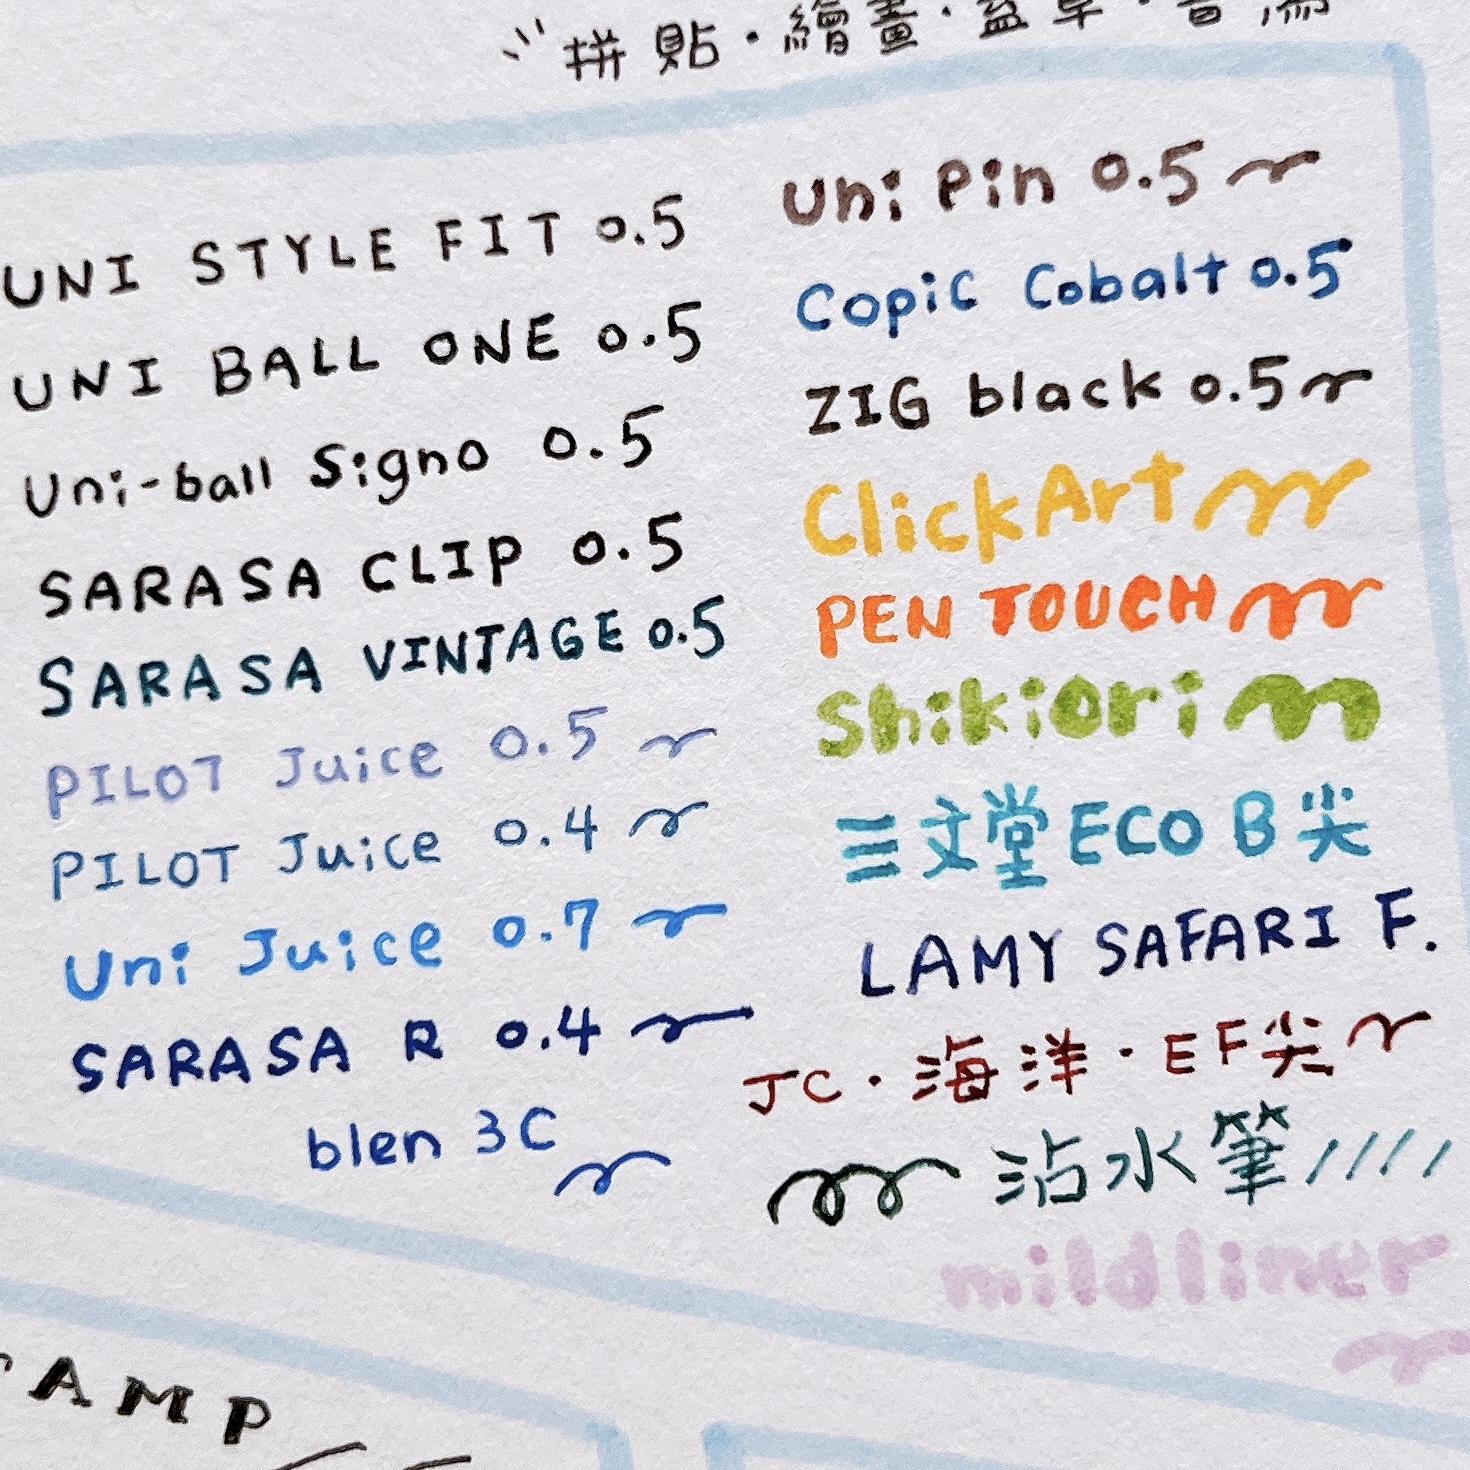 拼貼·繪畫·蓋章·書
UNI STYLE FIT 0.5
UNI BALL ONE 0.5
Uni-ball Signo 0.5
SARASA CLIP 0.5
SARASA VINTAGE 0.5
PILOT Juice 0.5
PILOT Juice 0.4
Uni Juice 0.7
SARASA R 0.4
blen 3C
Uni Pin 0.5
Copic Cobalt 0.5
ZIG black 0.5
ClickArt
PEN TOUCH
Shikiori
三文堂 ECO B尖
LAMY SAFARI F.
JC·海洋·EF尖
沾水筆
mildliner
AMP